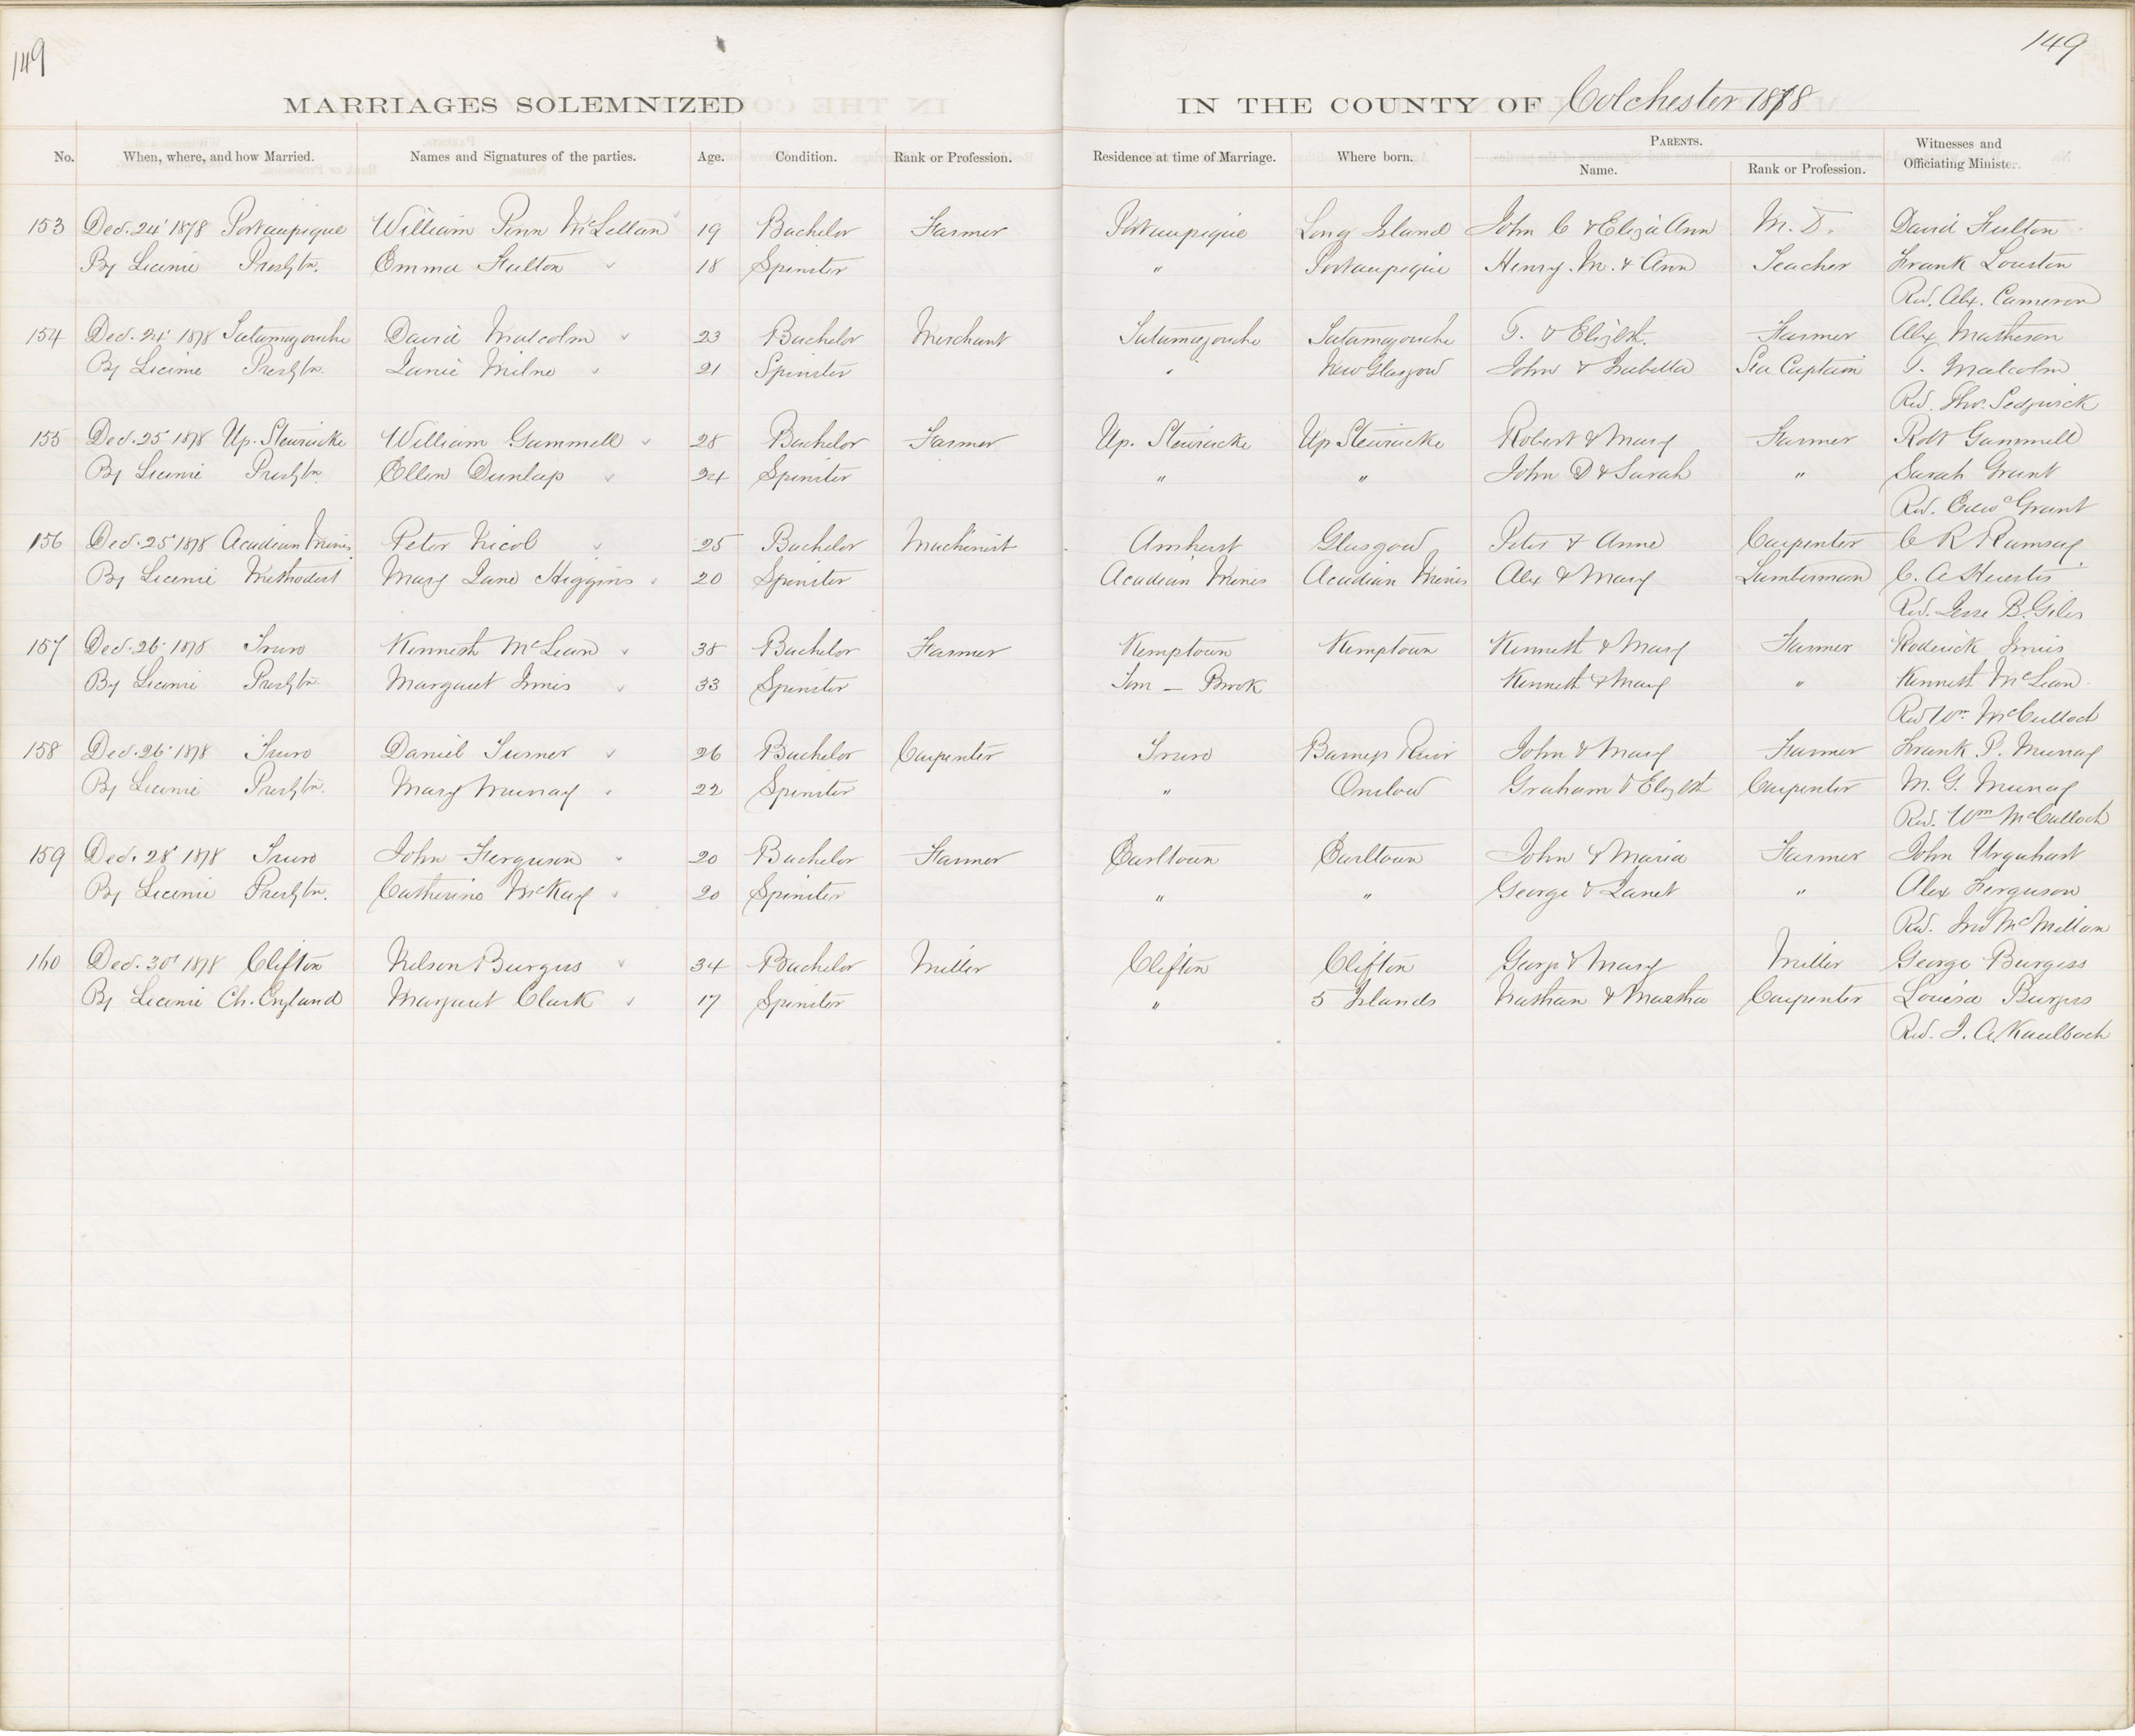 149
149
MARRIAGES SOLEMNIZED IN THE COUNTY OF Colchester 1878
No. When, where, and how Married. Names and Signatures of the parties. Age. Condition. Rank or Profession. Residence at time of Marriage. Where born. PARENTS. Name. Rank or Profession. Witnesses and Officiating Minister.
153 Dec. 24 1878 Portaupique William Penn McLellan 19 Bachelor Farmer Portaupique Long Island John C & Eliza Ann M.D. David Fulton
By License Presbtn. Emma Fulton 18 Spinster " Portaupique Henry. M. & Ann Teacher Frank
Rev. Alex. Cameron
154 Dec. 24 1878 Tatamagouche David Malcolm 23 Bachelor Merchant Tatamagouche Tatamagouche T. & Elizbth. Farmer Alex Matheson
By License Presbtn. Janie Milne 21 Spinster " New Glasgow John & Isabella Sea Captain T. Malcolm
Rev. Tho. Sedgwick
155 Dec. 25 1878 Up. Stewiacke William Gammell 28 Bachelor Farmer Up. Stewiacke Up Stewiacke Robert & Mary Farmer Robt Gammell
By License Presbtn. Ellen Dunlap 24 Spinster " " John D & Sarah " Sarah Grant
Rev. Edwd Grant
156 Dec. 25 1878 Acadian Mines Peter Nicol 25 Bachelor Machinist Amherst Glasgow Peter & Anne Carpenter C R Ramsay
By License Methodist Mary Jane Higgins 20 Spinster Acadian Mines Acadian Mines Alex & Mary Lumberman C. A Huestis
Rev. Jesse B. Giles
157 Dec. 26 1878 Truro Kenneth McLean 38 Bachelor Farmer Kemptown Kemptown Kenneth & Mary Farmer Roderick Innis
By License Presbtn. Margaret Innis 33 Spinster — Brook Kenneth & Mary " Kenneth McLean
Rev Wm. McCulloch
158 Dec. 26 1878 Truro Daniel Turner 26 Bachelor Carpenter Truro Barneys River John & Mary Farmer Frank P. Murray
By License Presbtn. Mary Murray 22 Spinster " Onslow Graham & Elizbth Carpenter M. G. Murray
Rev. Wm McCulloch
159 Dec. 28 1878 Truro John Ferguson 20 Bachelor Farmer Earltown Earltown John & Maria Farmer John Urquhart
By License Presbtn. Catherine McKay 20 Spinster " " George & Janet " Alex Ferguson
Rev. Jno McMillan
160 Dec. 30 1878 Clifton Nelson Burgess 34 Bachelor Miller Clifton Clifton George & Mary Miller George Burgess
By License Ch. England Margaret Clark 17 Spinster " 5 Islands Nathan & Martha Carpenter Louisa Burgess
Rev. J. A. Kaulbach